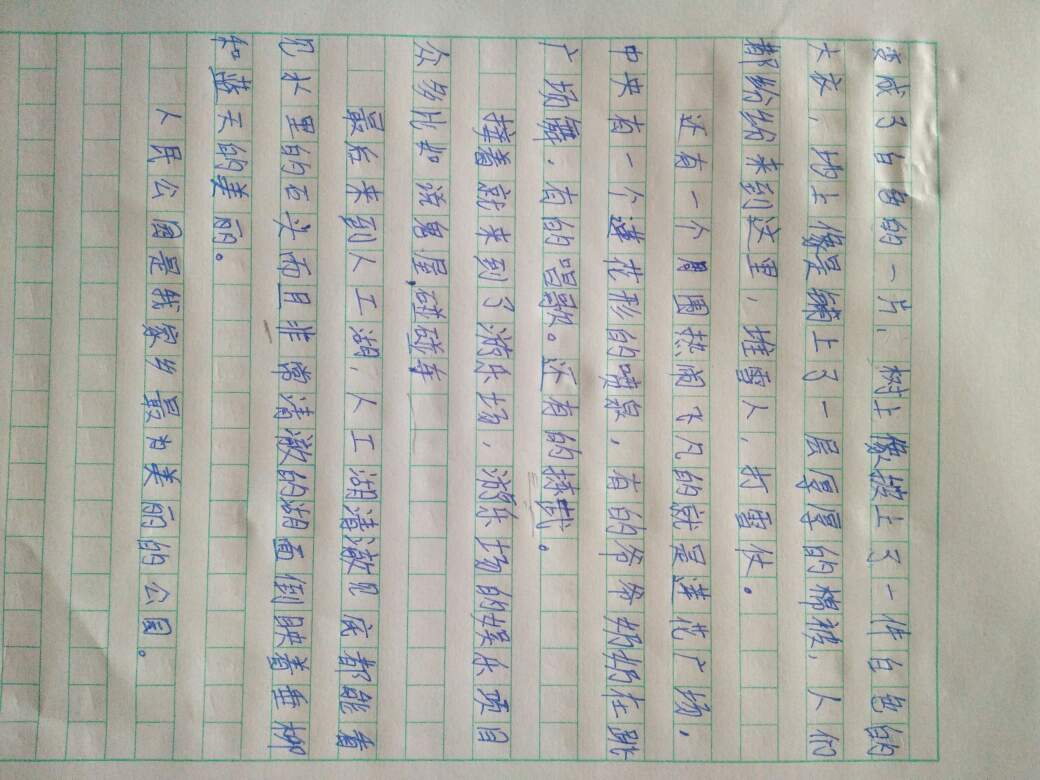 变成了白色的一片，树上像披上了一件白色的
大衣，地上像是铺上了一层厚厚的棉被，人们
都纷纷来到这里，堆雪人，打雪仗。
还有一个周围热闹飞凡的就是莲花广场，
中央有一个莲花形的喷泉，有的爷爷奶奶在跳
广场舞，有的唱歌。还有的接戏。
接着就来到了游乐场，游乐场的娱乐项目
众多比如流鬼屋，碰碰车
最后来到人工湖，人工湖清澈见底都能看
见水里的石头而且非常清澈的湖面倒映着垂柳
和蓝天的美丽。
人民公园是我家乡最为美丽的公园。